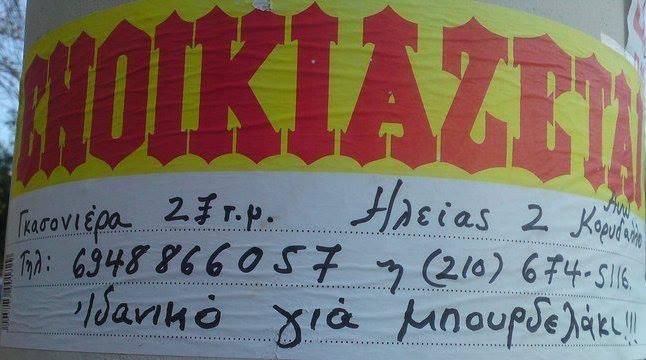 ΕΝΟΙΚΙΑΖΕΤΑΙ
Γκασονιέρα 27 τ.μ. Ηλείας 2 Άνω Κορυδαλλό
Τηλ: 6948866057 η (210) 674-5116.
Ιδανικό γιά μπουρδελάκι!!!